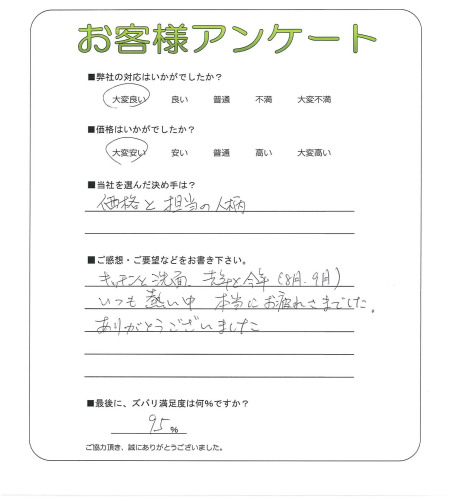 お客様アンケート
■弊社の対応はいかがでしたか？
大変良い 良い 普通 不満 大変不満
■価格はいかがでしたか？
大変安い 安い 普通 高い 大変高い
■当社を選んだ決め手は？
価格と担当の人柄
■ご感想・ご要望などをお書き下さい。
キッチンと洗面、去年と今年（8月.9月）
いつも熱い中 本当にお疲れさまでした。
ありがとうございました
■最後に、ズバリ満足度は何%ですか？
95%
ご協力頂き、誠にありがとうございました。